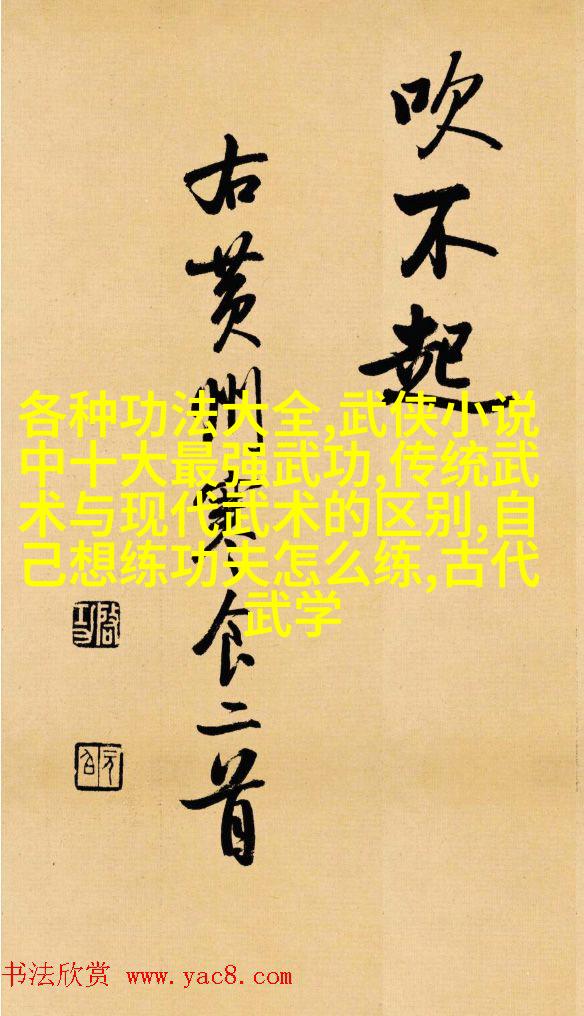 吹不起
右黄州寒食二首
啓功
元白
各种功法大全,武侠小说
中十大最强武功,传统武
术与现代武术的区别,自
己想练功夫怎么练,古代
武学
书法欣赏 www.yac8.com